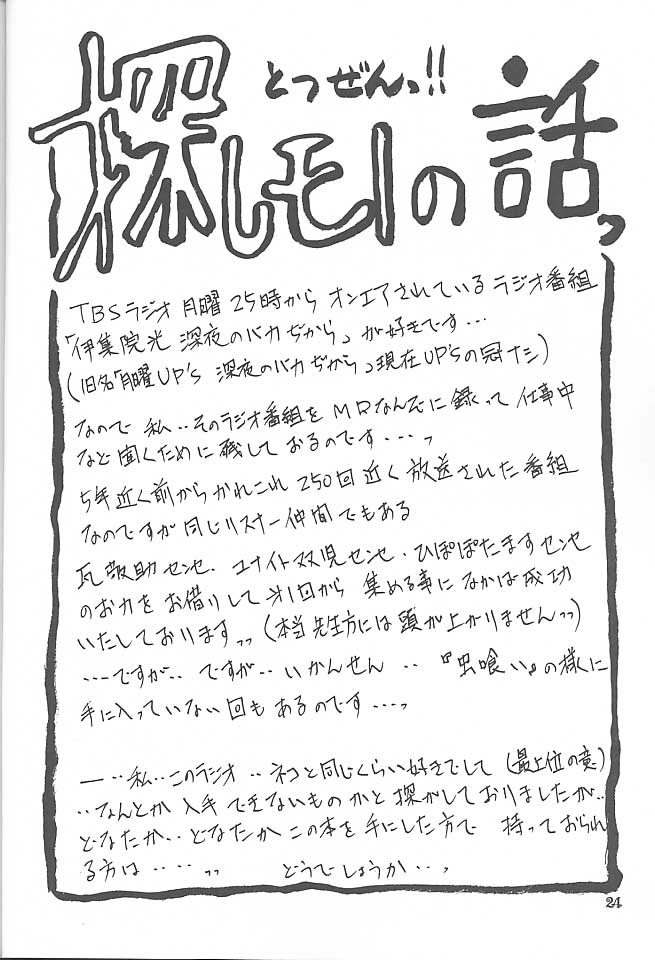 とつぜんっ!!
探しモノの話っ
TBSラジオ月曜25時からオンエアされているラジオ番組
「伊集院光 深夜のバカぢから」が好きです…
(旧名「月曜UP'S 深夜のバカぢから」現在UP'Sの冠ナシ)
なので私‥そのラジオ番組をMDなんぞに録って仕事中
など聞くために残しておるのです…っ
5年近く前からかれこれ250回近く放送された番組
なのですが同じリスナー仲間でもある
瓦敬助センセ・ユナイト双児センセ・ひぽぽたますセンセ
のお力をお借りして第1回から集める事になかば成功
いたしておりますっっ(本当先生方には頭が上がりませんっっ)
…ですが‥ですが‥いかんせん‥『虫喰い』の様に
手に入っていない回もあるのです…っ
ー‥私‥このラジオ‥ネコと同じくらい好きでして(最上位の意)
‥なんとか入手できないものかと探がしておりましたが‥
どなたか‥どなたかこの本を手にした方で 持っておられ
る方は‥‥っっ どうでしょうか‥っ
24